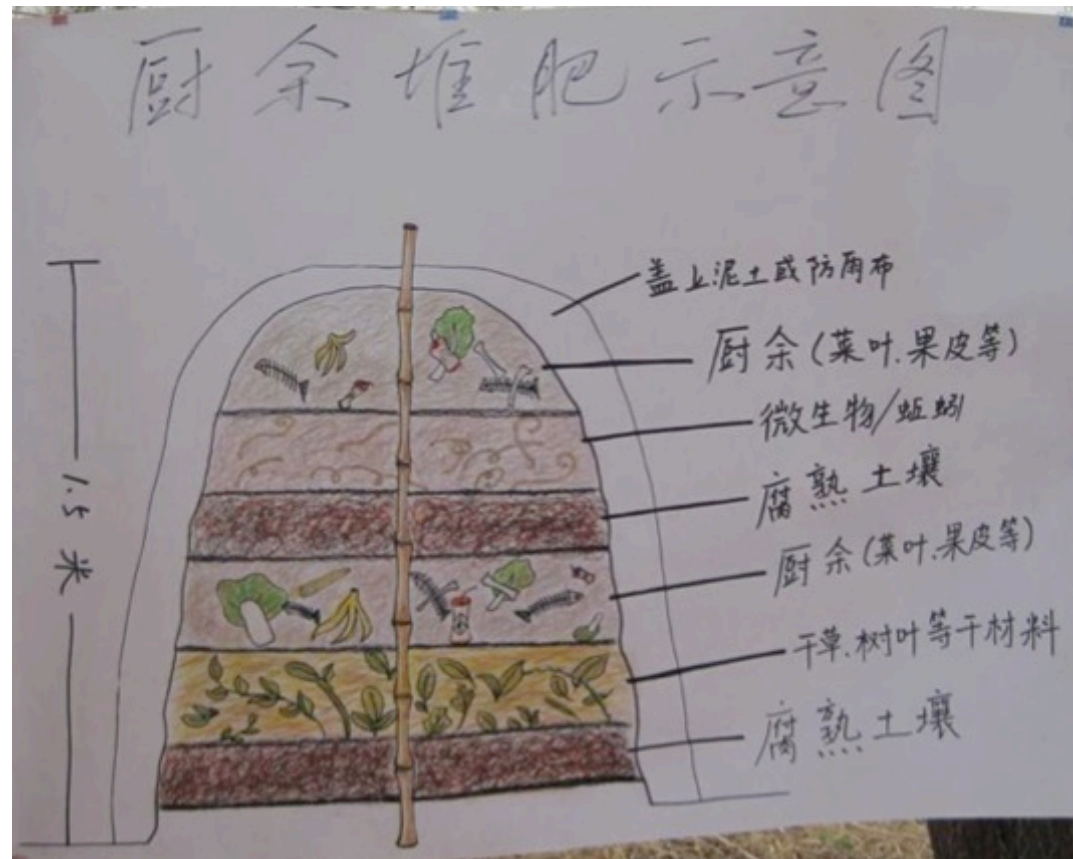 厨余堆肥示意图
盖上泥土或防雨布
厨余(菜叶.果皮等)
微生物/蚯蚓
腐熟土壤
厨余(菜叶.果皮等)
干草.树叶等干材料
腐熟土壤
1.5米